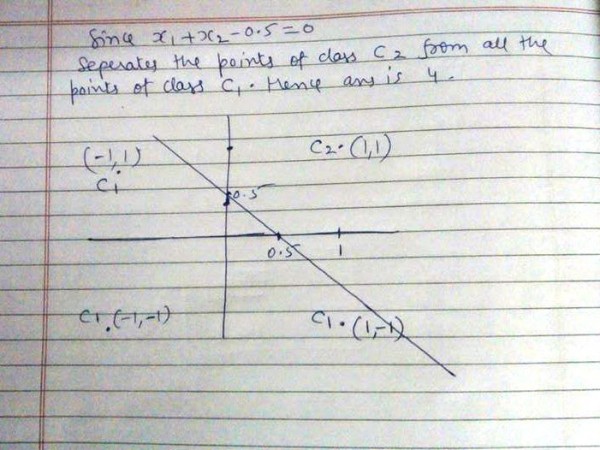 Since x₁+x₂-0.5=0
Seperates the points of class C₂ from all the
points of class C₁. Hence ans is 4.
(-1,1)
C₁
C₂ · (1,1)
0.5
0.5
1
C₁ · (-1,-1)
C₁ · (1,-1)